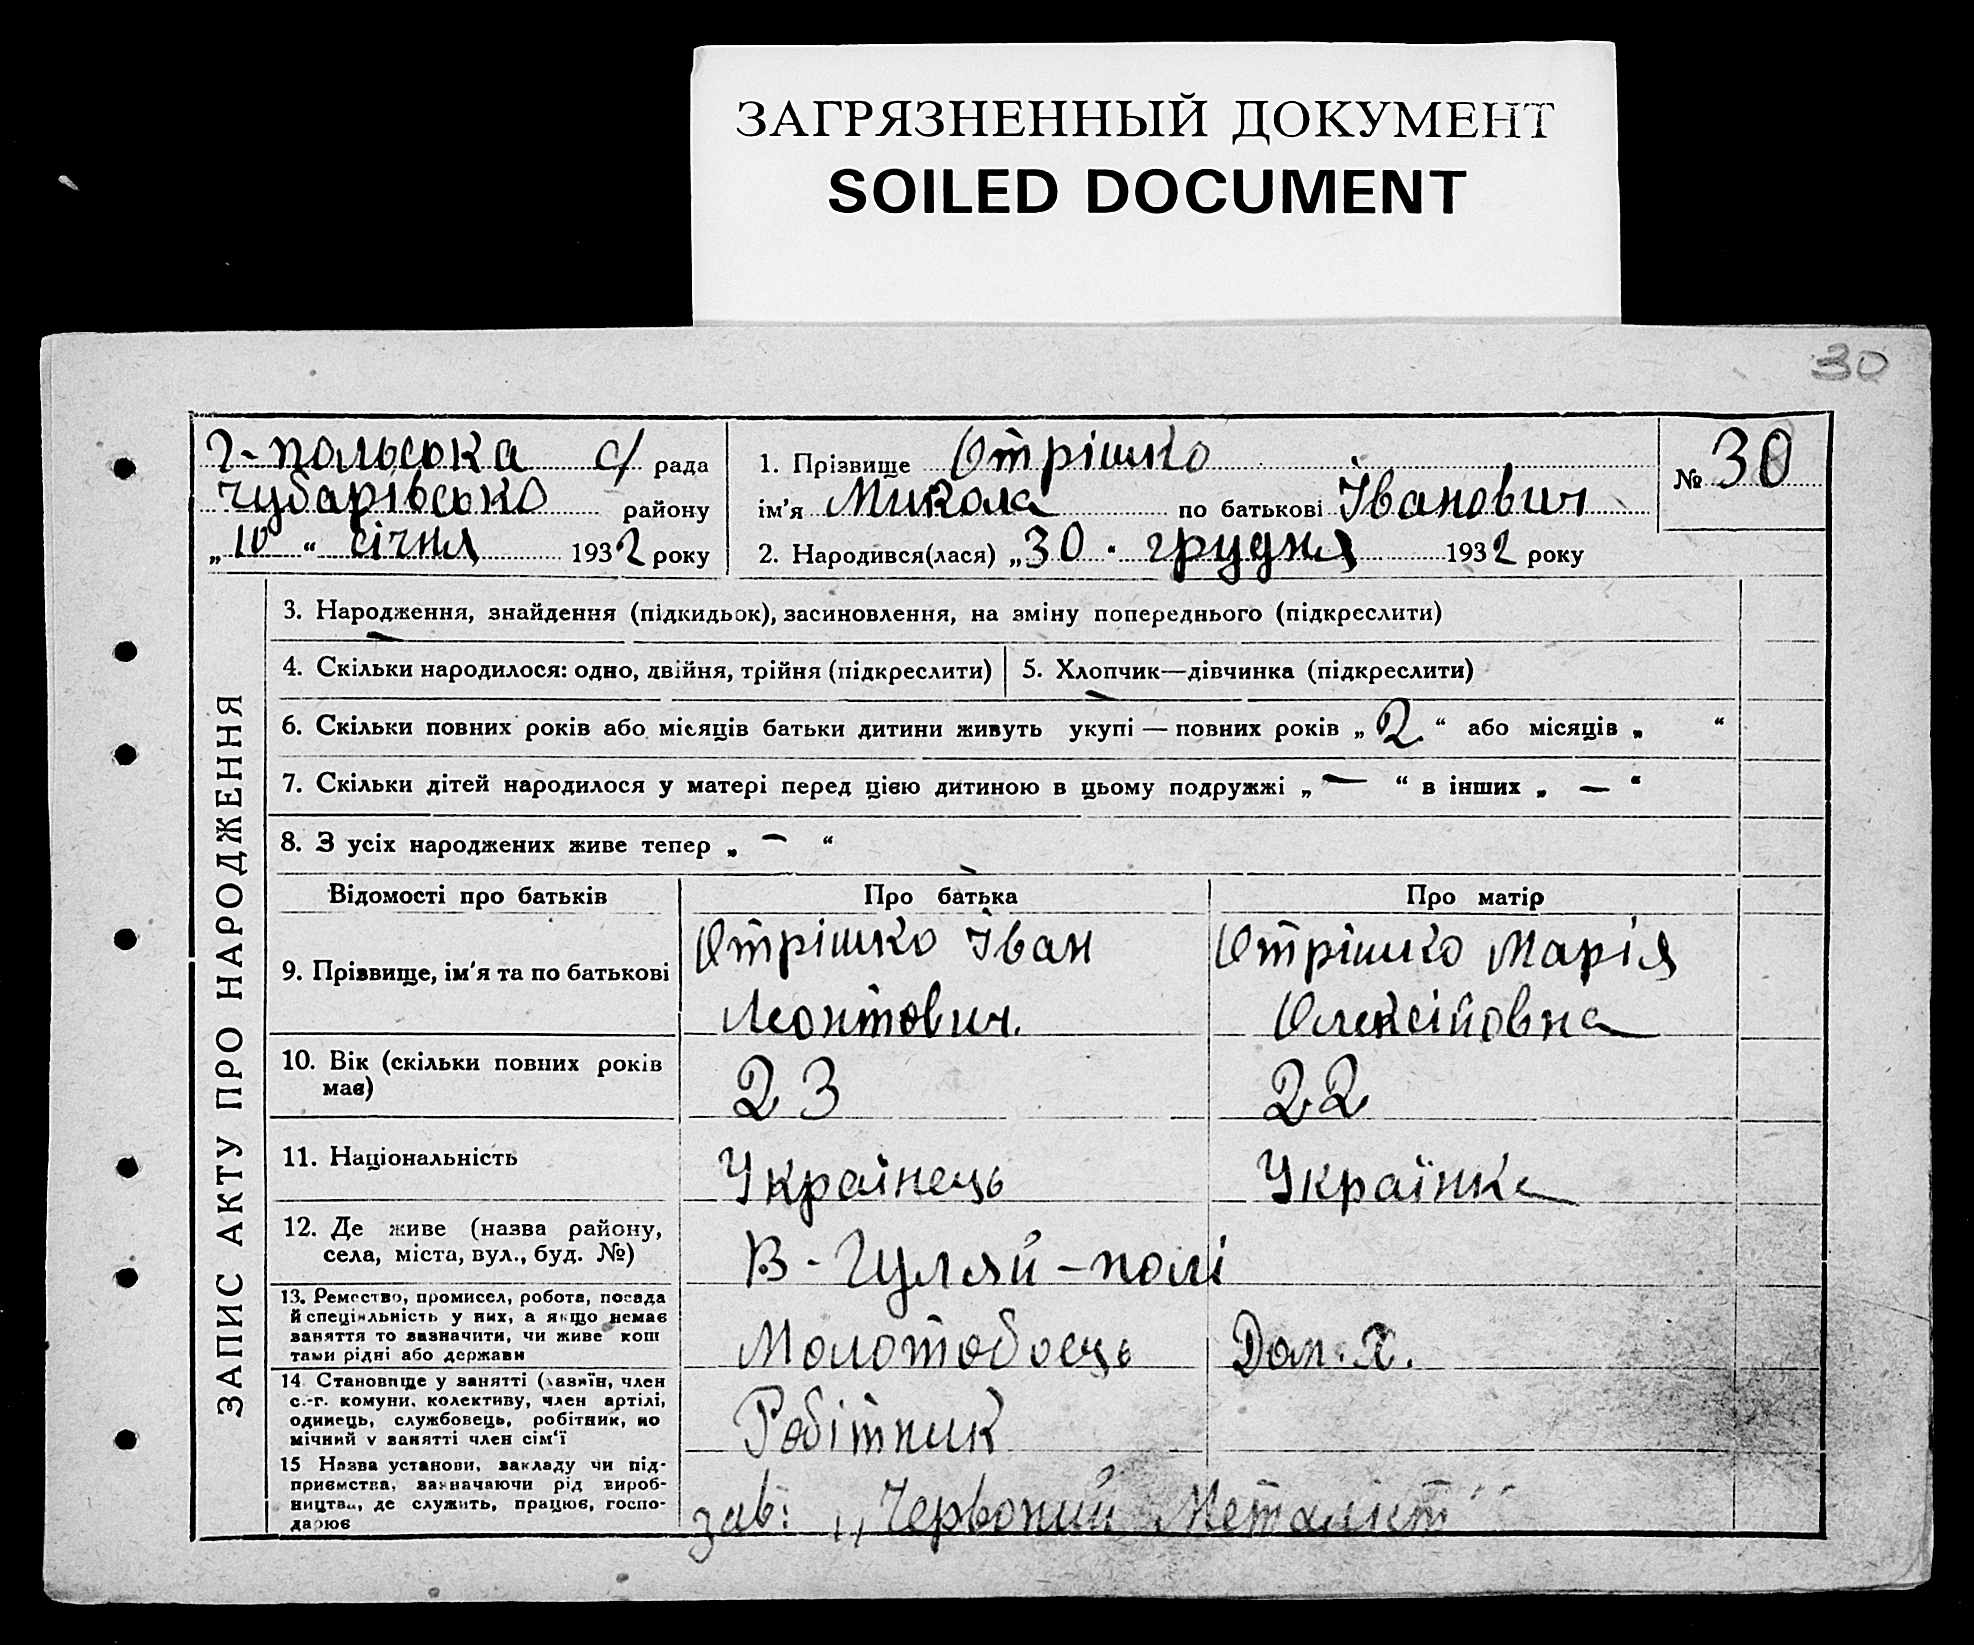 ЗАГРЯЗНЕННЫЙ ДОКУМЕНТ
SOILED DOCUMENT
30
Г-польська с/ рада
Чубарівсько району
„10“ січня 1932 року
1. Прізвище Отрішко
ім'я Микола по батькові Іванович
2. Народився(лася) „30. грудня 1932 року
№ 30
ЗАПИС АКТУ ПРО НАРОДЖЕННЯ
3. Народження, знайдення (підкидьок), засиновлення, на зміну попереднього (підкреслити)
4. Скільки народилося: одно, двійня, трійня (підкреслити)
5. Хлопчик—дівчинка (підкреслити)
6. Скільки повних років або місяців батьки дитини живуть укупі — повних років „2“ або місяців „ “
7. Скільки дітей народилося у матері перед цією дитиною в цьому подружжі „—“ в інших „—“
8. З усіх народжених живе тепер „—“
Відомості про батьків Про батька Про матір
9. Прізвище, ім'я та по батькові
Отрішко Іван
Леонтович.
Отрішко Марія
Олексійовна
10. Вік (скільки повних років
має)
23
22
11. Національність
Українець
Українка
12. Де живе (назва району,
села, міста, вул., буд. №)
В-Гуляй-полі
13. Ремество, промисел, робота, посада
й спеціяльність у них, а якщо немає
заняття то зазначити, чи живе кош
тами рідні або держави
Молотобоєць
Дом. х.
14 Становище у занятті (хазяїн, член
с.-г. комуни, колективу, член артілі,
одинець, службовець, робітник, по
мічний у занятті член сім'ї
Робітник
15 Назва установи, закладу чи під-
приємства, зазначаючи рід вироб-
ництва, де служить, працює, госпо-
дарює
зав: „Червоний Металіст“